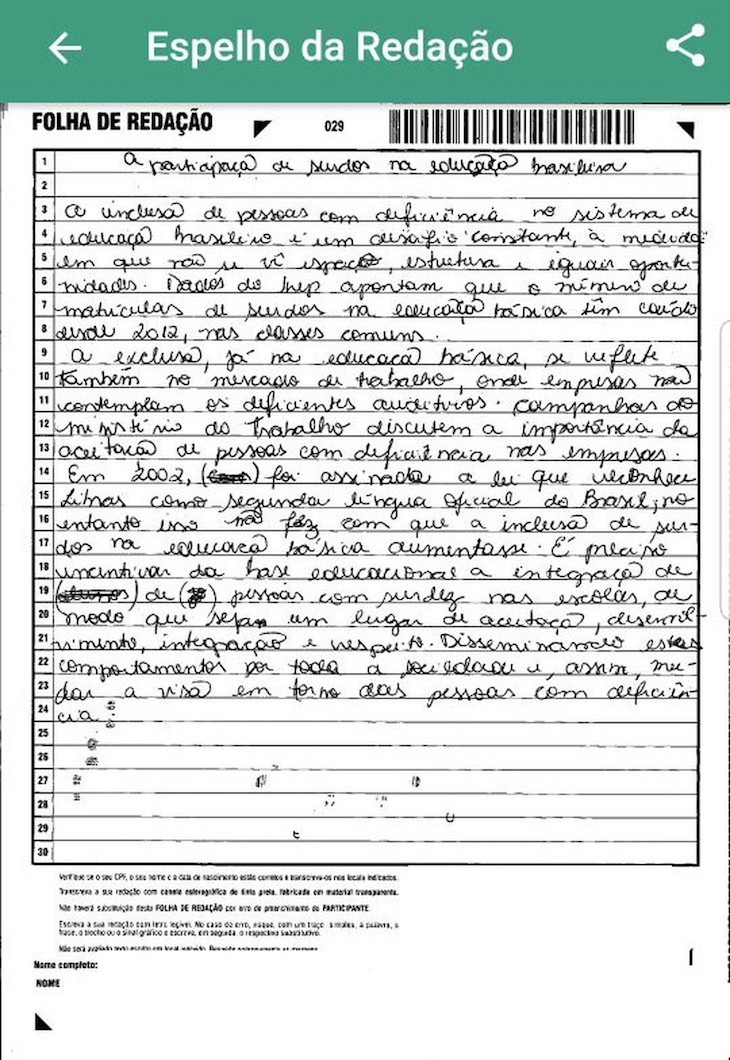 Espelho da Redação
FOLHA DE REDAÇÃO
029
1 A participaçã de surdos na educaçã brasileira
2
3 A inclusã de pessoas com deficiência no sistema de
4 educaçã brasileiro é um desafio constante, à medida
5 em que não se vê espaço, estrutura e iguais oportu-
6 nidades. Dados do Inep apontam que o número de
7 matrículas de surdos na educaçã básica têm caído
8 desde 2012, nas classes comuns.
9 A exclusã, já na educaçã básica, se reflete
10 também no mercado de trabalho, onde empresas nã
11 contemplam os deficientes auditivos. Campanhas do
12 ministério do Trabalho discutem a importância da
13 aceitaçã de pessoas com deficiência nas empresas.
14 Em 2002, () foi assinada a lei que reconhece
15 Libras como segunda língua oficial do Brasil; no
16 entanto isso nã fez com que a inclusã de sur-
17 dos na educaçã básica aumentasse. É preciso
18 incentivar da base educacional a integraçã de
19 () de () pessoas com surdez nas escolas, de
20 modo que sejam um lugar de aceitaçã, desenvol-
21 vimento, integraçã e respeito. Disseminando estes
22 comportamentos por toda a sociedade e, assim, mu-
23 dar a visã em torno das pessoas com deficiên-
24 cia.
25
26
27
28
29
30
Verifique se o seu CPF, o seu nome e a data de nascimento estão corretos e transcreva-os nos locais indicados.
Transcreva a sua redação com caneta esferográfica de tinta preta, fabricada em material transparente.
Não haverá substituição desta FOLHA DE REDAÇÃO por erro de preenchimento do PARTICIPANTE.
Escreva a sua redação com letra legível. No caso de erro, risque, com um traço simples, a palavra, a
frase, o trecho ou o sinal gráfico e escreva, em seguida, o respectivo substitutivo.
Não será avaliado texto escrito em local indevido.
Nome completo:
NOME